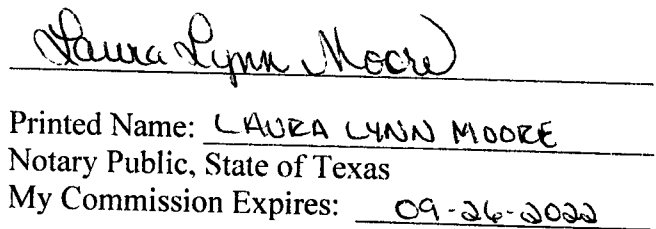 Laura Lynn Moore
Printed Name: LAURA LYNN MOORE
Notary Public, State of Texas
My Commission Expires: 09-26-2022